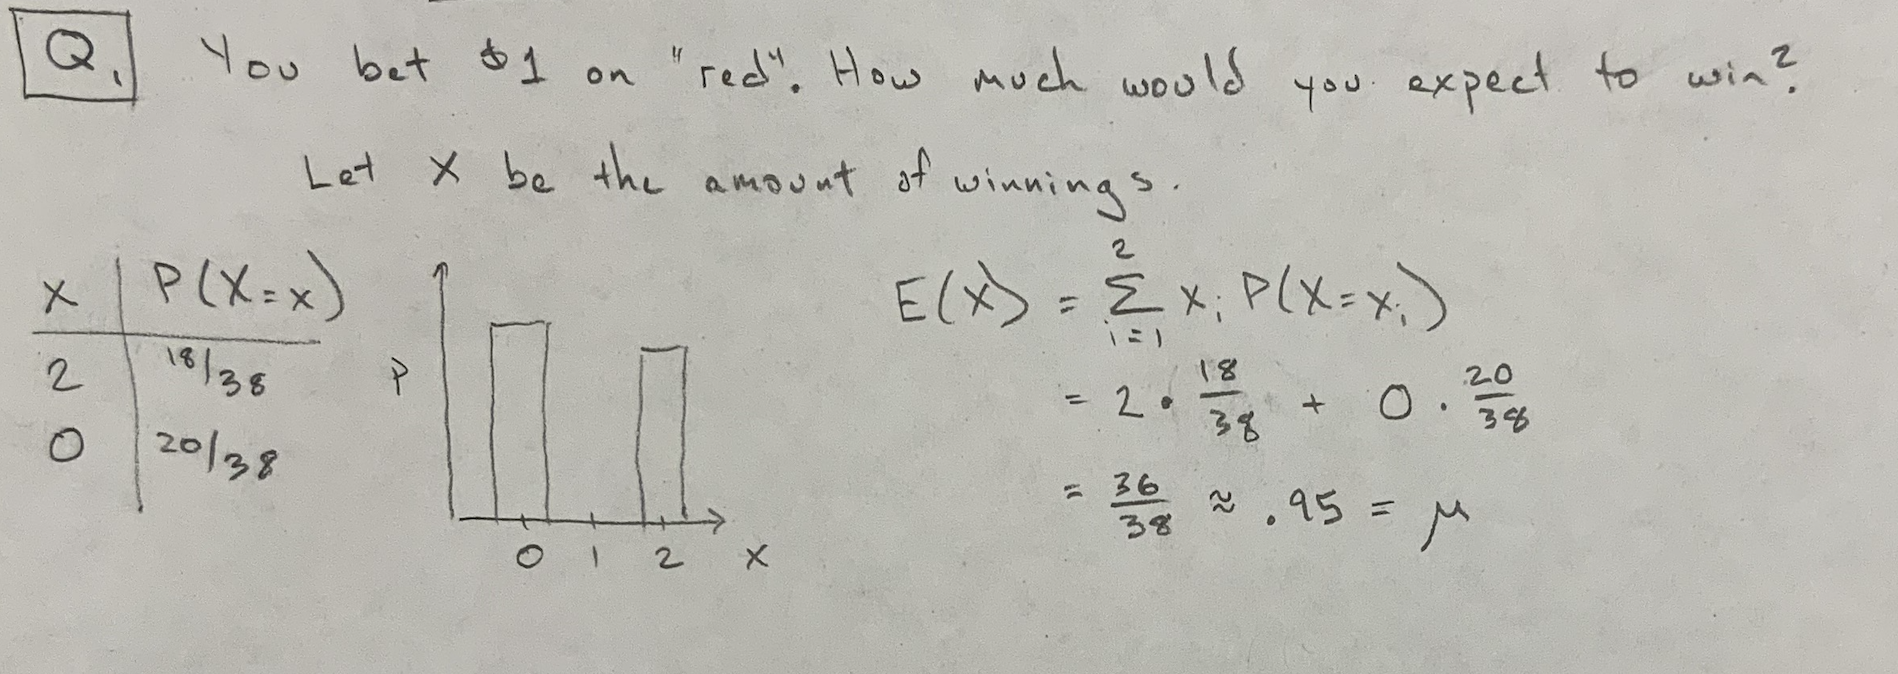 Q. You bet $1 on "red". How much would you expect to win?
Let X be the amount of winnings.
x | P(X=x)
2 | 18/38
0 | 20/38
P
0 1 2 x
E(X) = 2 Σ i=1 xᵢ P(X=xᵢ)
= 2 · 18/38 + 0 · 20/38
= 36/38 ≈ .95 = μ